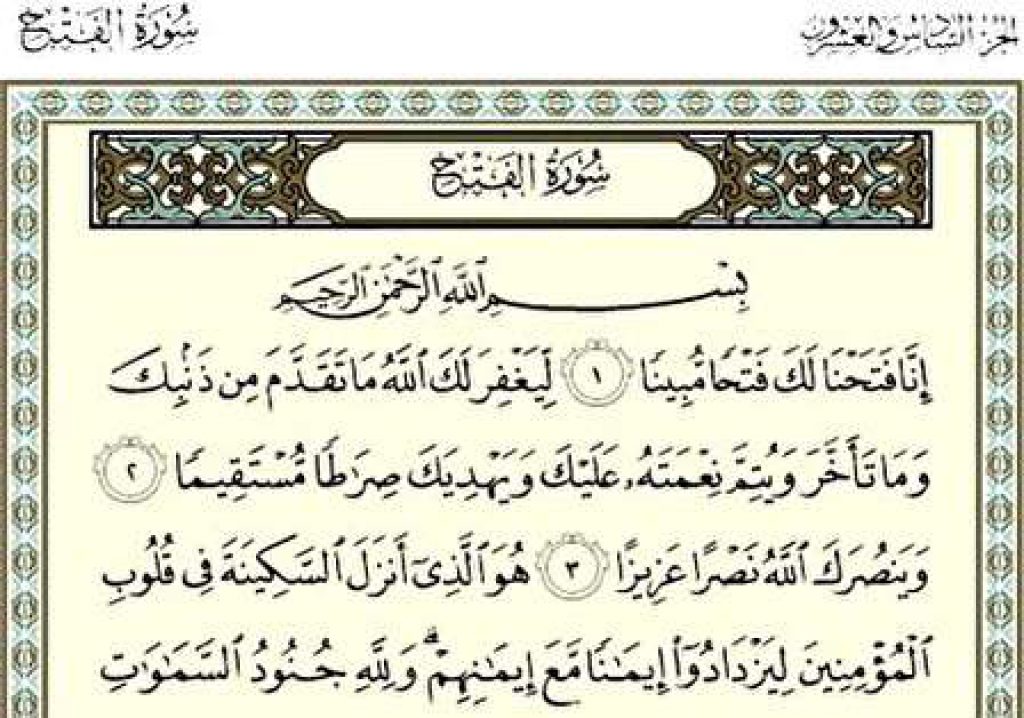 الجزء السادس والعشرون
سُورَةُ الفَتْحِ
سُورَةُ الفَتْحِ
بِسْمِ ٱللَّهِ ٱلرَّحْمَٰنِ ٱلرَّحِيمِ
إِنَّا فَتَحْنَا لَكَ فَتْحًا مُّبِينًا ١ لِّيَغْفِرَ لَكَ ٱللَّهُ مَا تَقَدَّمَ مِن ذَنۢبِكَ
وَمَا تَأَخَّرَ وَيُتِمَّ نِعْمَتَهُۥ عَلَيْكَ وَيَهْدِيَكَ صِرَٰطًا مُّسْتَقِيمًا ٢
وَيَنصُرَكَ ٱللَّهُ نَصْرًا عَزِيزًا ٣ هُوَ ٱلَّذِىٓ أَنزَلَ ٱلسَّكِينَةَ فِى قُلُوبِ
ٱلْمُؤْمِنِينَ لِيَزْدَادُوٓا۟ إِيمَٰنًا مَّعَ إِيمَٰنِهِمْ ۗ وَلِلَّهِ جُنُودُ ٱلسَّمَٰوَٰتِ